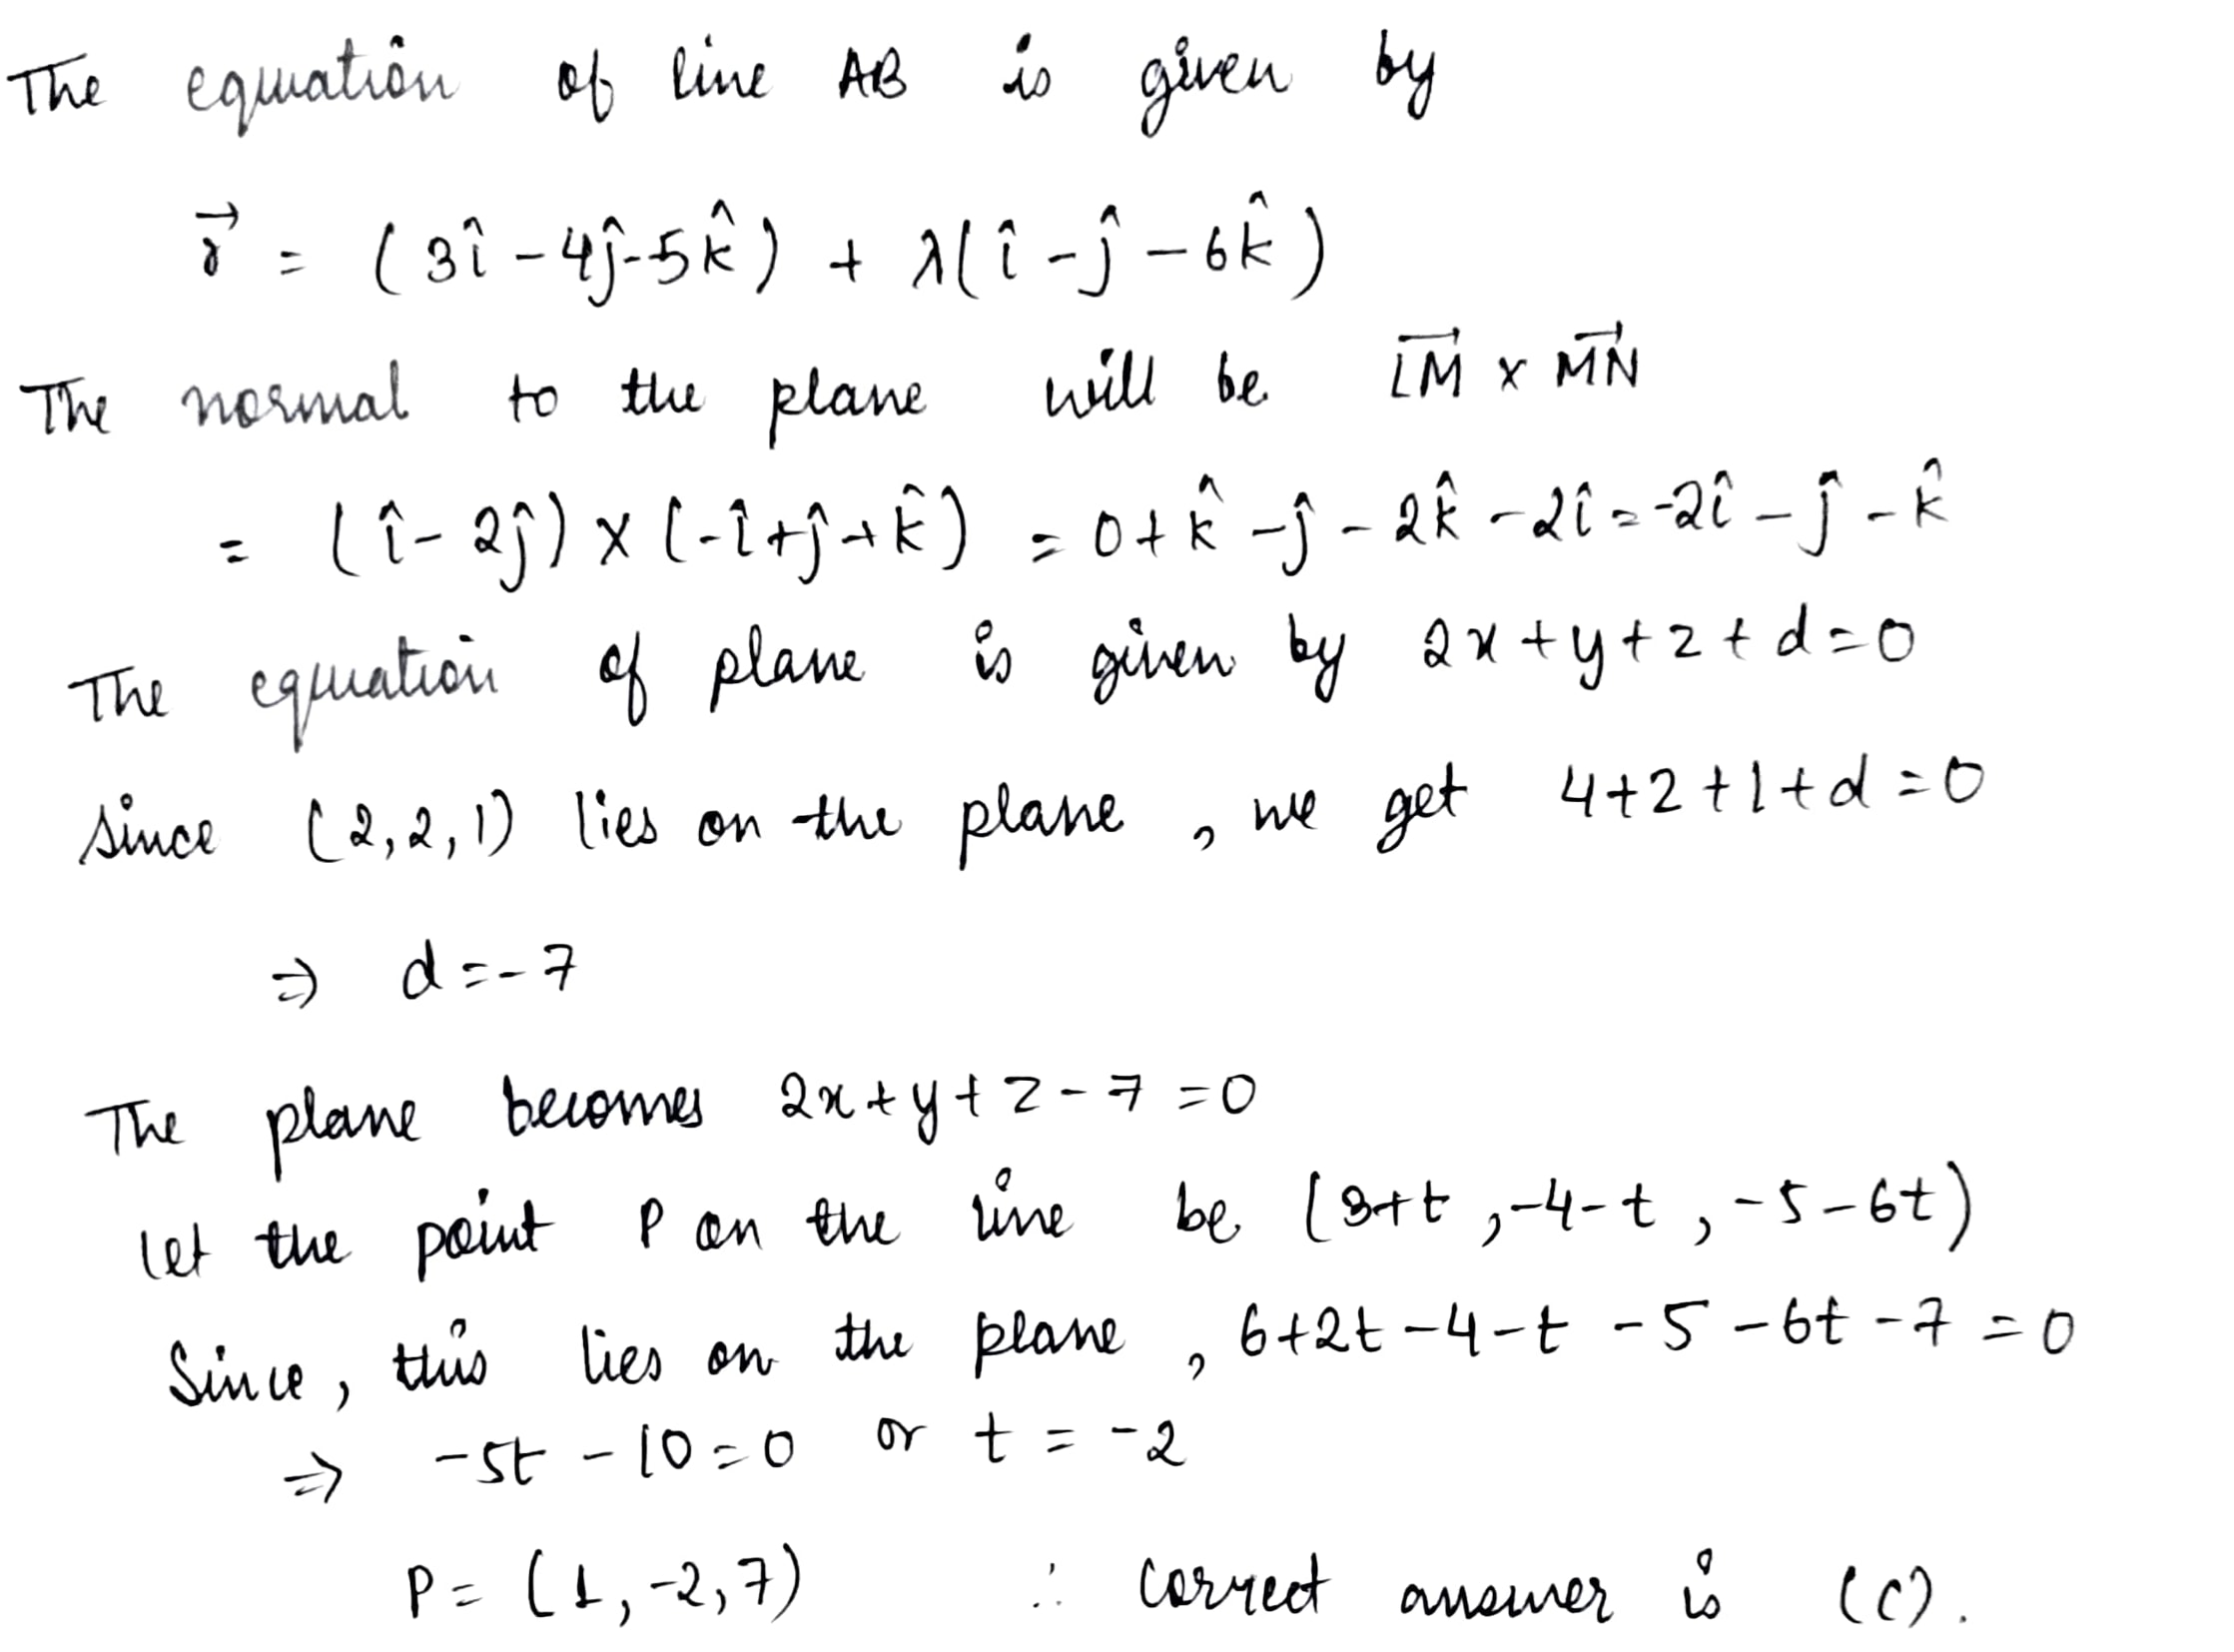 The equation of line AB is given by
r⃗ = (3î - 4ĵ - 5k̂) + λ(î - ĵ - 6k̂)
The normal to the plane will be L⃗M × M⃗N
= (î - 2ĵ) × (-î + ĵ + k̂) = 0 + k̂ - ĵ - 2k̂ - 2î = -2î - ĵ - k̂
The equation of plane is given by 2x + y + z + d = 0
Since (2, 2, 1) lies on the plane, we get 4 + 2 + 1 + d = 0
⇒ d = -7
The plane becomes 2x + y + z - 7 = 0
Let the point P on the line be (3+t, -4-t, -5-6t)
Since, this lies on the plane, 6 + 2t - 4 - t - 5 - 6t - 7 = 0
⇒ -5t - 10 = 0 or t = -2
P = (1, -2, 7) ∴ Correct answer is (C).